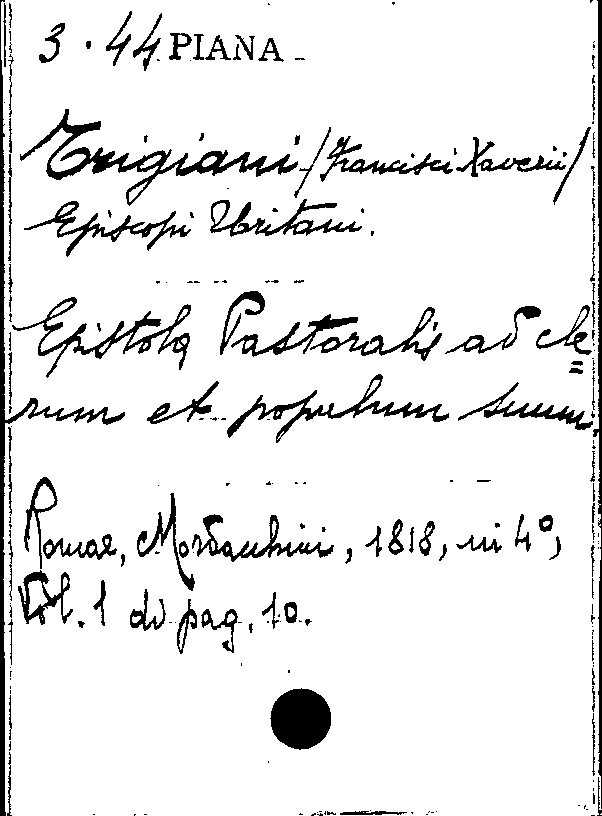 3.44 PIANA
Trigiani /Francisci Xaverii/
Episcopi Uritani.
Epistola Pastoralis ad cle=
rum et populum suum.
Romae, Mordacchini, 1818, in 4°,
Vol. 1 di pag. 10.